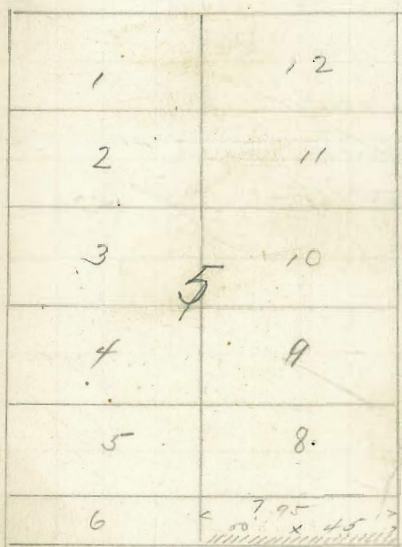 1 12
2 11
3 10
5
4 9
5 8
6 7
95
00 x 45